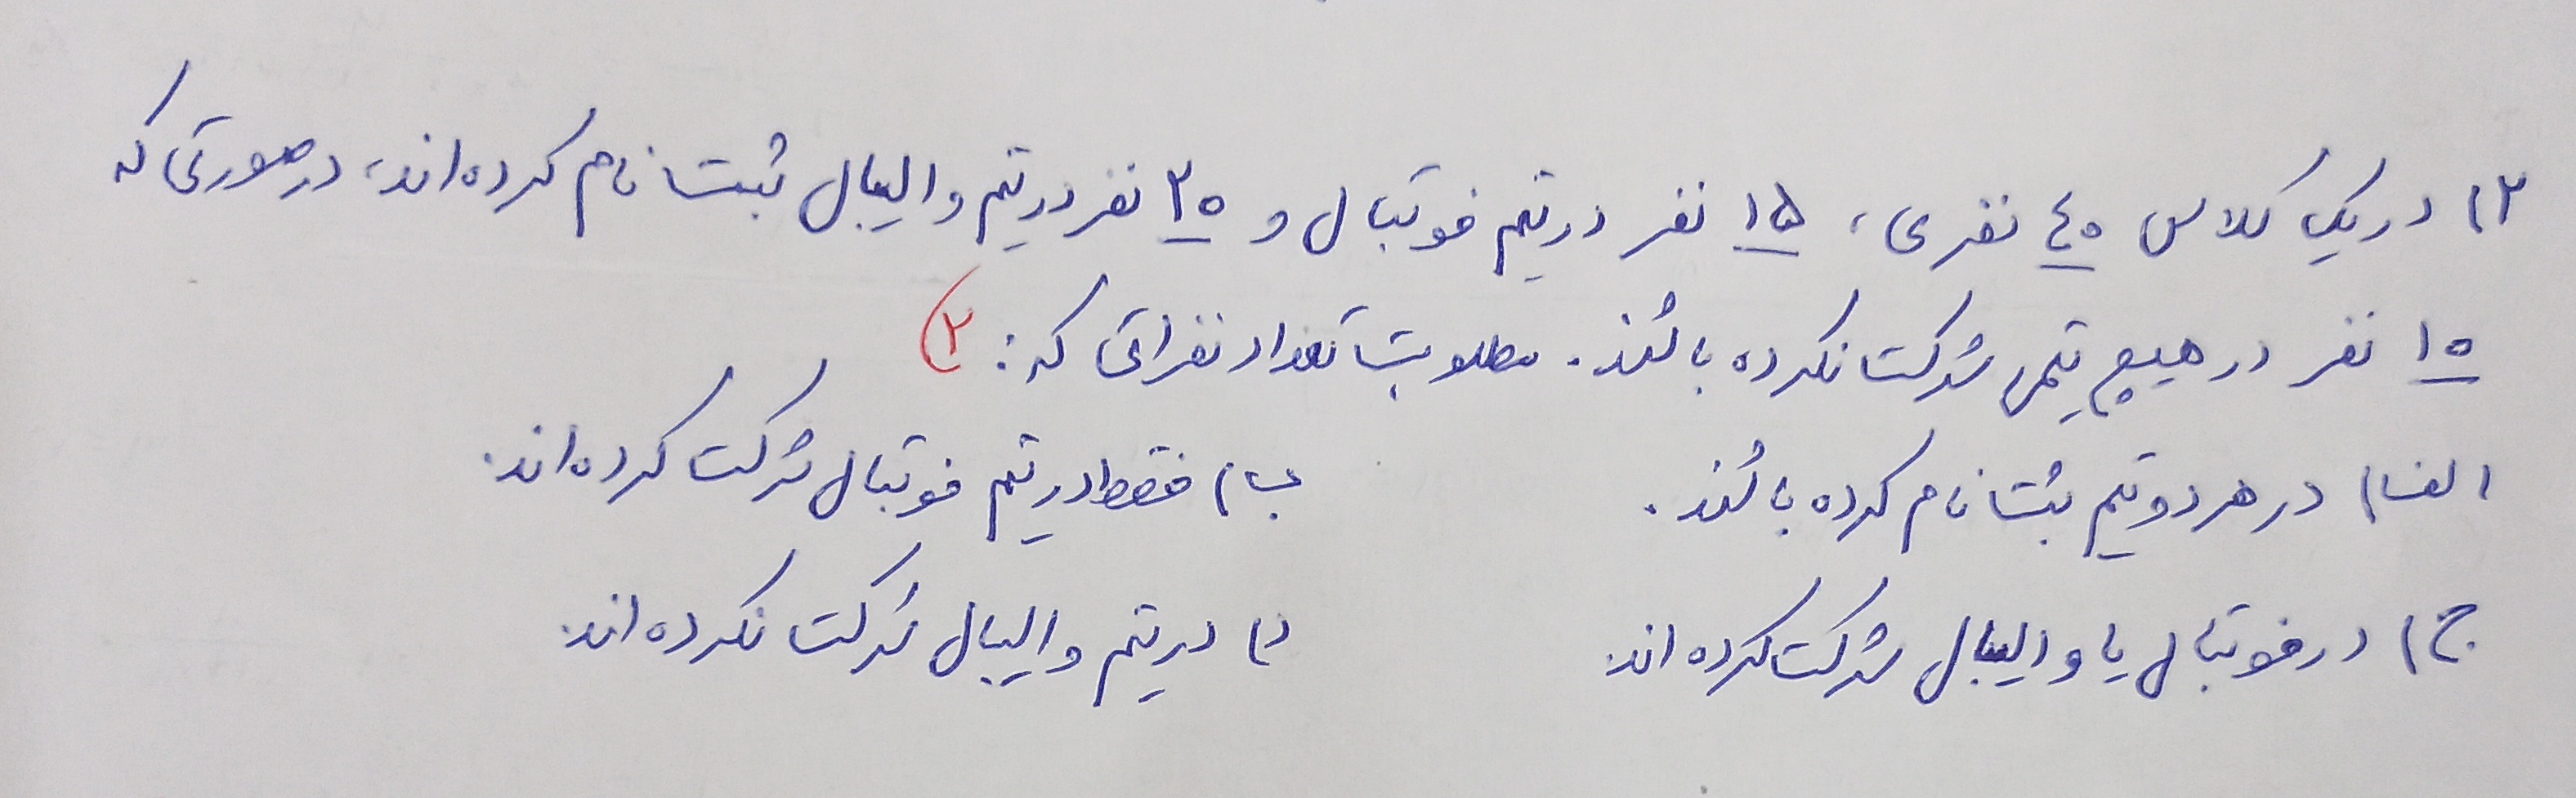 ۲) در یک کلاس ۴۰ نفری، ۱۵ نفر در تیم فوتبال و ۲۰ نفر در تیم والیبال ثبت نام کرده‌اند، در صورتی که
۱۰ نفر در هیچ تیمی شرکت نکرده باشند. مطلوبست تعداد نفراتی که: (۲
الف) در هر دو تیم ثبت نام کرده باشند. ب) فقط در تیم فوتبال شرکت کرده‌اند.
ج) در فوتبال یا والیبال شرکت کرده‌اند. د) در تیم والیبال شرکت نکرده‌اند.